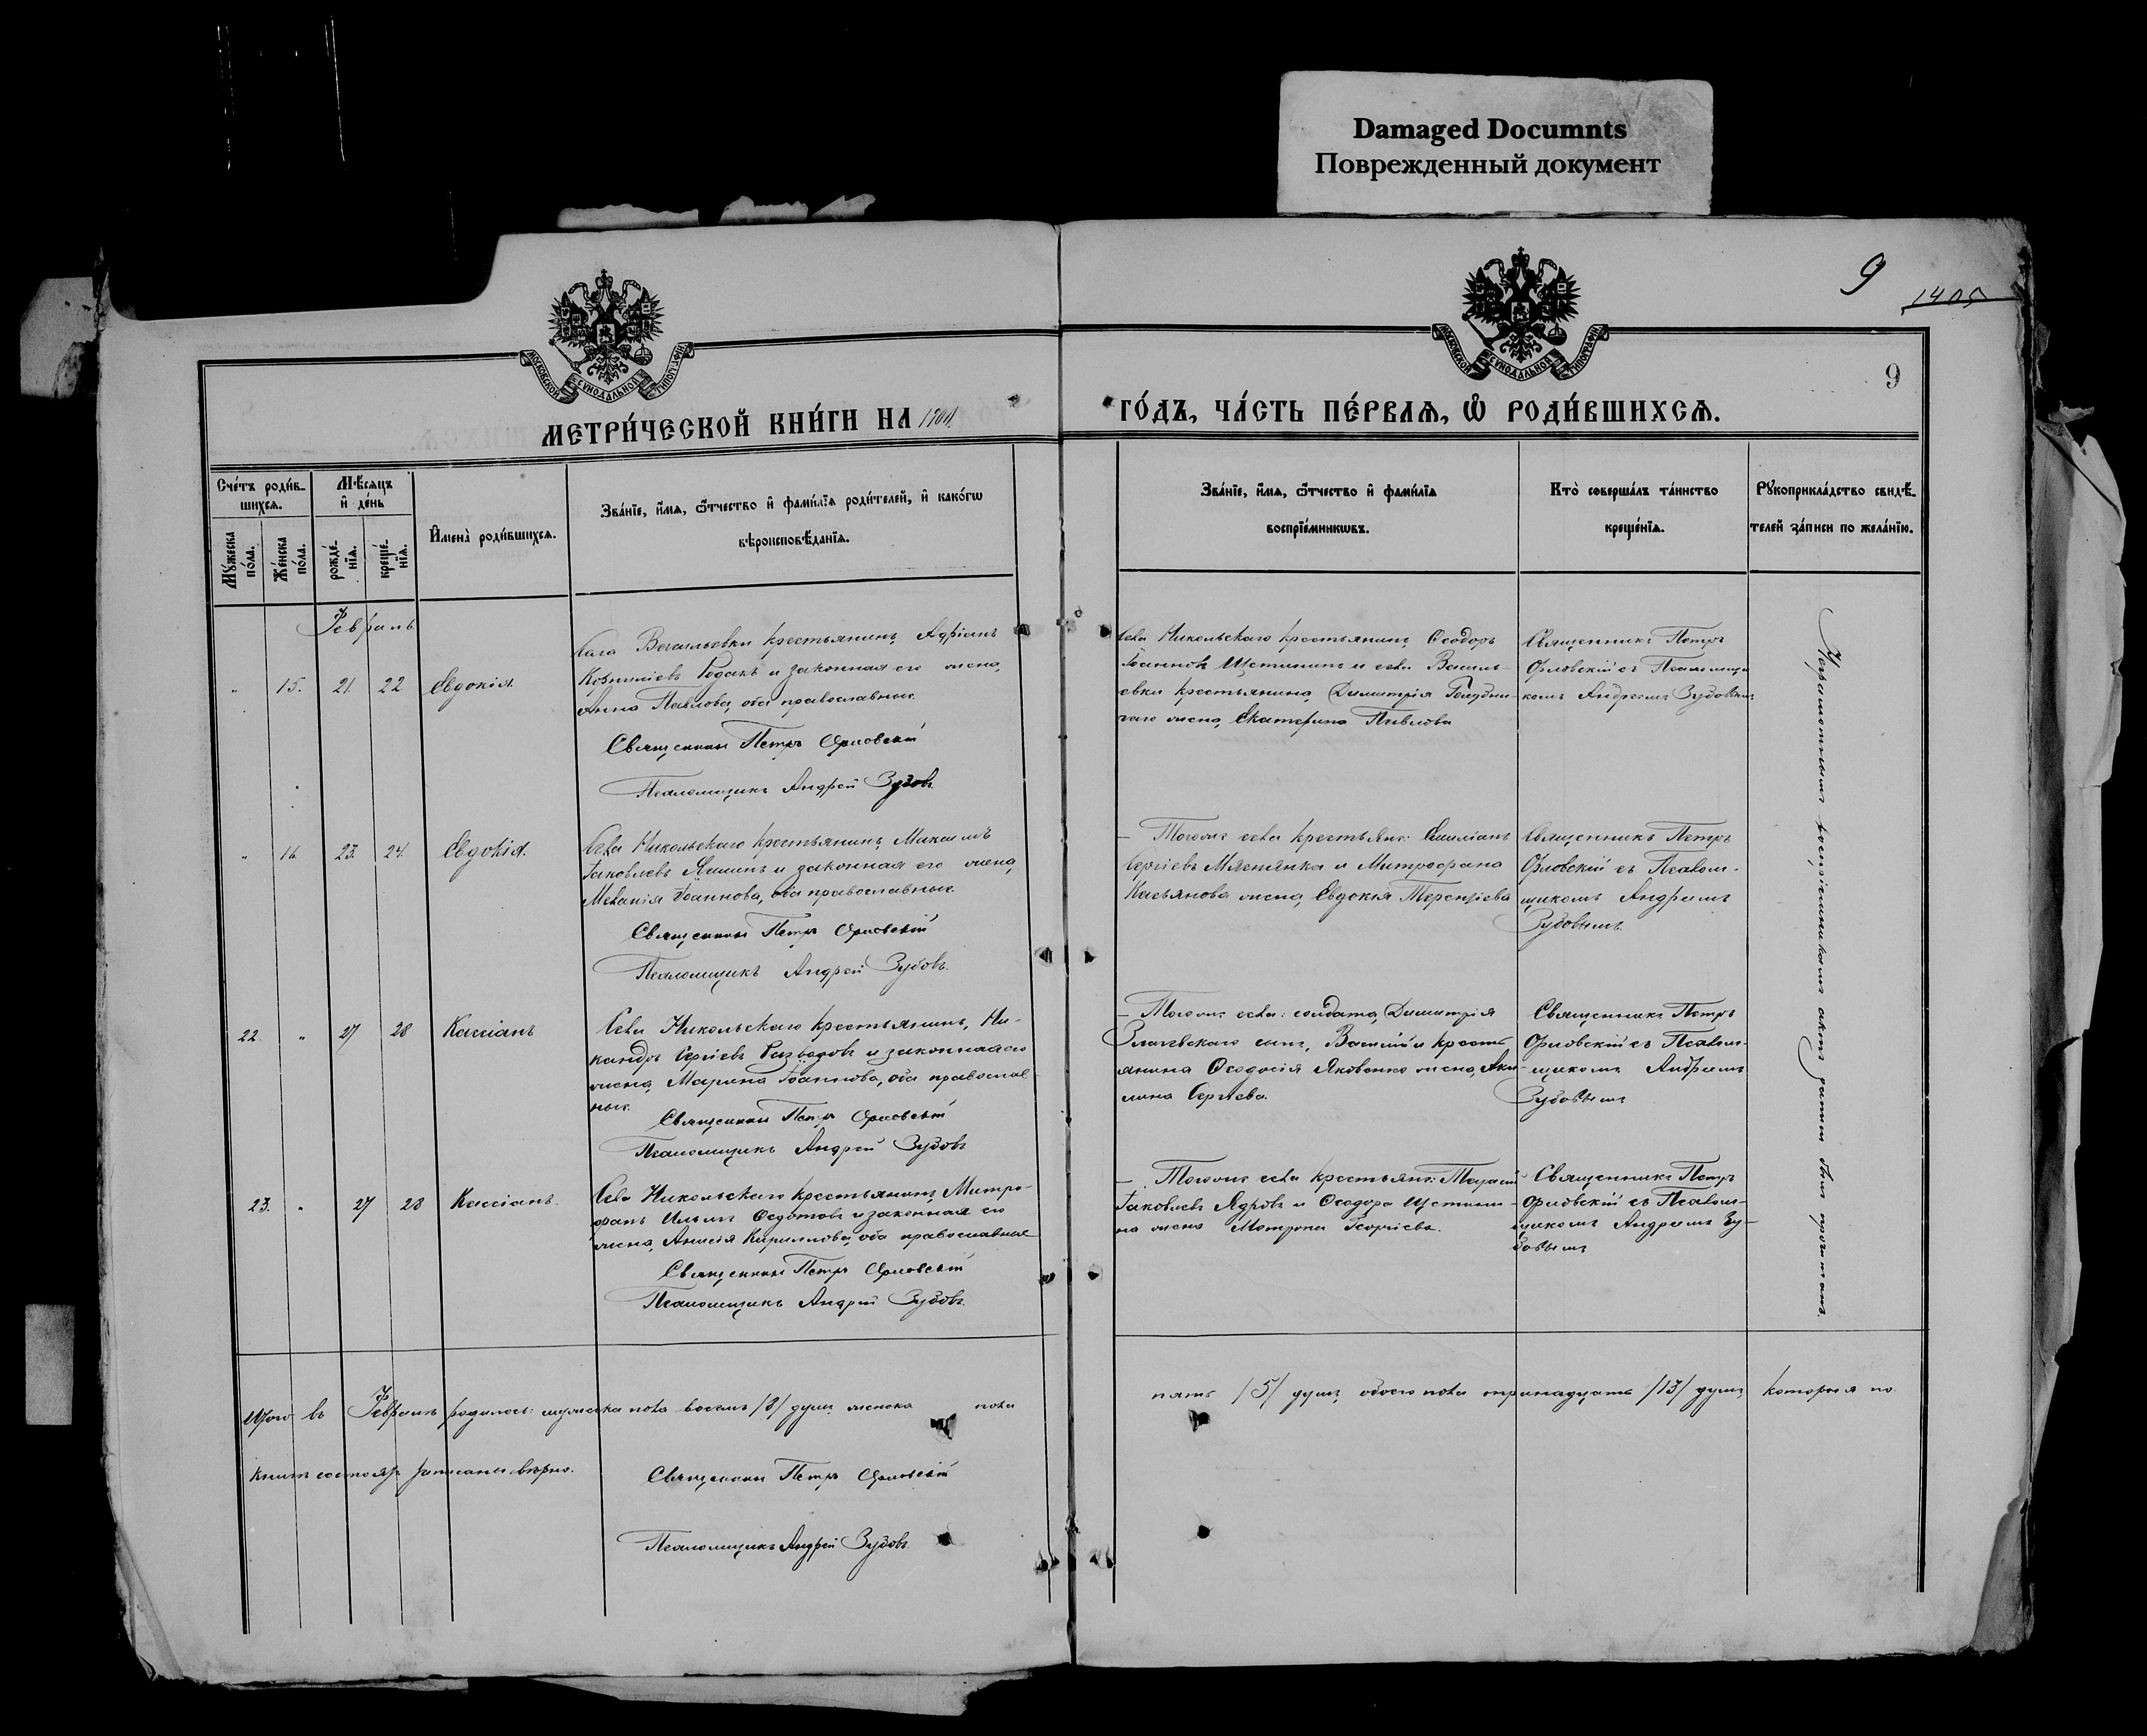 Damaged Documnts
Поврежденный документ
9
1405
МОСКОВСКОЙ СУНОДАЛЬНОЙ ТИПОГРАФІИ
МОСКОВСКОЙ СУНОДАЛЬНОЙ ТИПОГРАФІИ
9
МЕТРИ́ЧЕСКОЙ КНИ́ГИ НА
ГО́ДЪ, ЧА́СТЬ ПЕ́РВАѦ, Ѡ҆ РОДИ́ВШИХСѦ.
Сче́тъ роди́в-
шихсѧ.
Мѣ́сѧцъ
и҆ де́нь
Мꙋ́жеска
по́ла.
Же́нска
по́ла.
рожде́-
нїѧ.
креще́-
нїѧ.
И҆мена̀ роди́вшихсѧ.
Зва́нїе, и҆́мѧ, ѻ҆́тчество и҆ фами́лїѧ роди́телей, и҆ како́гѡ
вѣроисповѣ́данїѧ.
Зва́нїе, и҆́мѧ, ѻ҆́тчество и҆ фами́лїѧ
воспрїе́мникѡвъ.
Кто̀ соверша́лъ та́инство
креще́нїѧ.
Рꙋкоприкла́дство свидѣ́-
телей за́писи по жела́нїю.
Февраль
" 15. 21. 22. Евдокія.
Села Васильевки крестьянинъ, Адріанъ
Родакъ и законная его жена,
Анна Павлова, оба православные.
Священникъ Петръ Орловскій
Псаломщикъ Андрей Зубовъ.
Села Никольскаго крестьянинъ, Ѳеодоръ
Іоанновъ Щетининъ и села Василь-
евки крестьянина, Димитрія
жена, Екатерина Павлова
Священникъ Петръ
Орловскій съ Псаломщи-
комъ Андреемъ Зубовымъ
" 16. 23. 24. Евдокія.
Села Никольскаго крестьянинъ, Максимъ
Іаковлевъ Яшинъ и законная его жена,
Меланія Іоаннова, оба православные.
Священникъ Петръ Орловскій
Псаломщикъ Андрей Зубовъ.
— Тогоже села крестьян: Емиліанъ
Сергіевъ Мясянка и Митрофана
Касьянова жена, Евдокія Терентіева
Священникъ Петръ
Орловскій съ Псалом-
щикомъ Андреемъ
Зубовымъ.
22. " 27 28 Кассіанъ
Села Никольскаго крестьянинъ, Ни-
кандръ Сергіевъ и законная его
жена, Марина Іоаннова, оба православ-
ные.
Священникъ Петръ Орловскій
Псаломщикъ Андрей Зубовъ
— Тогоже села: солдата, Димитрія
сынъ, Василій и кресть-
янина Ѳеодосія Яковенко жена, Аки-
лина Сергіева.
Священникъ Петръ
Орловскій съ Псалом-
щикомъ Андреемъ
Зубовымъ
23. " 27 28 Кассіанъ.
Села Никольскаго крестьянинъ, Митро-
фанъ Ильинъ Ѳедотовъ и законная его
жена, Анисія Кириллова, оба православные
Священникъ Петръ Орловскій
Псаломщикъ Андрей Зубовъ.
— Тогоже села крестьян: Тарасій
Іаковлевъ Ядровъ и Ѳеодора Щетини-
на жена Матрона Георгіева.
Священникъ Петръ
Орловскій съ Псалом-
щикомъ Андреемъ Зу-
бовымъ
Неграмотнымъ воспріемникамъ актъ записи былъ прочитанъ.
Итого въ Февралѣ родилось: мужеска пола восемь /8/ душъ, женска пола
пять /5/ душъ, обоего пола тринадцать /13/ душъ, которыя по
книгѣ записаны вѣрно.
Священникъ Петръ Орловскій
Псаломщикъ Андрей Зубовъ.